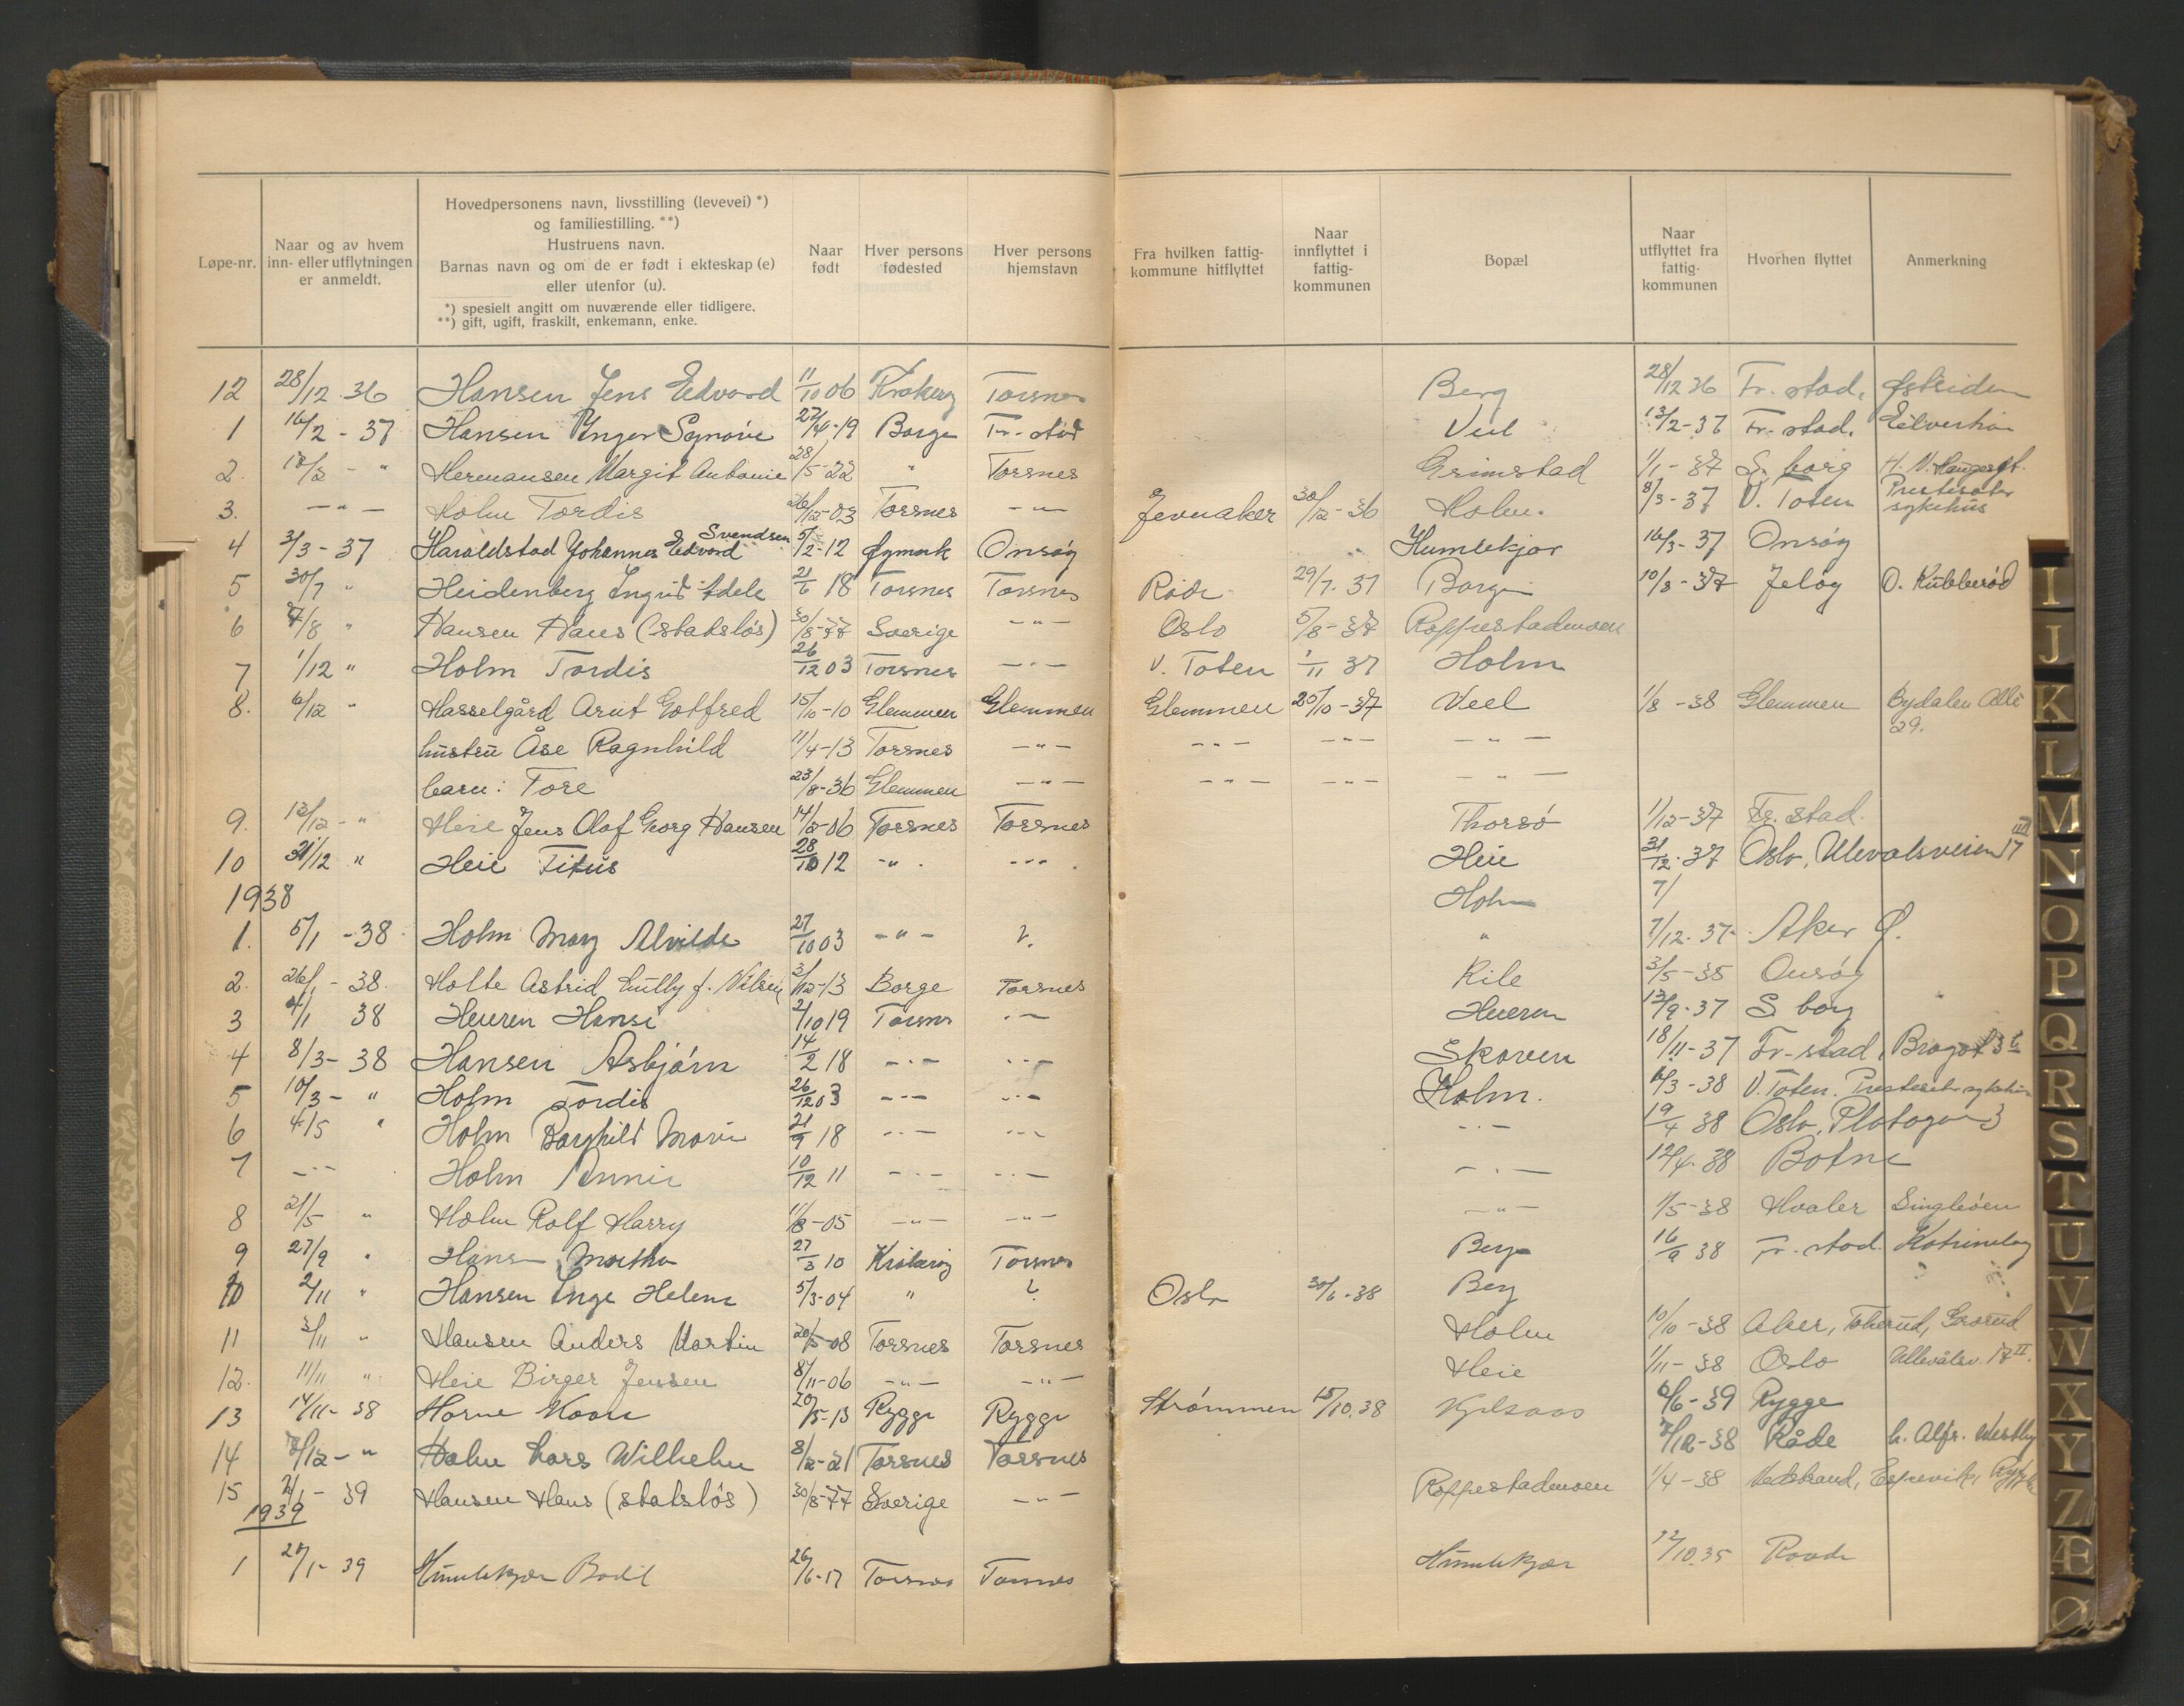 Løpe-nr.
Naar og av hvem inn- eller utflytningen er anmeldt.
Hovedpersonens navn, livsstilling (levevei) *)
og familiestilling. **)
Hustruens navn.
Barnas navn og om de er født i ekteskap (e)
eller utenfor (u).
*) spesielt angitt om nuværende eller tidligere.
**) gift, ugift, fraskilt, enkemann, enke.
Naar født
Hver persons fødested
Hver persons hjemstavn
Fra hvilken fattig-kommune hitflyttet
Naar innflyttet i fattig-kommunen
Bopæl
Naar utflyttet fra fattig-kommunen
Hvorhen flyttet
Anmerkning
12 28/12 36 Hansen Jens Edvard 11/10 06 Torsnes Berg 28/12 36 Fr. stad. Østsiden
1 16/2 - 37 Hansen Inger Synøve 27/4-19 Borge Fr. stad Veel 13/2-37 Fr. stad.
2. 18/2 - " Hermansen Margit Antonie 28/5-22 " Torsnes Grimstad 1/1-37 S. borg
3. - " - Holm Tordis 26/12-03 Torsnes - " - Jevnaker 30/12-36 Holm. 8/3-37 V. Toten Presteseter sykehus
4 3/3-37 Haraldstad Johannes Edvard Svendsen 5/2-12 Øymark Onsøy Humlekjær 16/3-37 Onsøy
5 30/7 " Heidenberg Ingrid Adele 21/6 18 Torsnes Torsnes Råde 29/7. 37 Borge 10/8-37 Jeløy O. Kubberød
6 7/8 " Hansen Hans (statsløs) 30/8-77 Sverige - " - Oslo 5/8-37 Roppestadmoen
7 1/12 " Holm Tordis 26/12 03 Torsnes - " - V. Toten 1/11 37 Holm
8. 6/12 " Hasselgård Arnt Gotfred 15/10-10 Glemmen Glemmen Glemmen 20/10-37 Veel 1/8-38 Glemmen Bydalen Allé 29.
hustru Åse Ragnhild 11/4-13 Torsnes - " - - " - - " - - " -
barn: Tore 23/8-36 Glemmen - " - - " - - " - - " -
9. 13/12 - " Heie Jens Olaf Georg Hansen 14/2-06 Torsnes Torsnes Thorsø 1/12-37 Fr. stad.
10 31/12 " Heie Titus 28/10 12 - " - - " - Heie 31/12 37 Oslo, Ulevalsveien 17 III
1938 Holm 7/
1. 5/1 - 38 Holm Mary Alvilde 27/10 03 - " - " 7/12. 37 Aker
2. 26/1 - 38. Holte Astrid Emilly f. Nilsen 3/12-13 Borge Torsnes Kile 3/5-35 Onsøy
3 38 Hueren Hansi 2/10 19 Torsnes - " - Hueren 13/9-37 S borg
4 8/3 - 38 Hansen Asbjørn 14/2 18 - " - - " - Skoven 18/11-37 Fr-stad,
5 10/3 - " Holm Tordis 26/12 03 - " - - " - Holm. 6/3-38 V. Toten. Presteseter sykehus
6 4/5 " Holm Borghild Marie 21/9 18 - " - - " - - " - 19/4 38 Oslo,
7 - " - Holm Annie 10/12 11 - " - - " - - " - 12/4-38 Botne
8 21/5 " Holm Rolf Harry 11/8-05 - " - - " - - " - 1/5-38 Hvaler Singløen
9 27/9 " Hansen Martha 27/3 10 Kråkerøy Torsnes Berg 16/9 38 Fr. stad.
10 2/11 " Hansen Inga Helene 5/3-04 " ? Oslo 30/6-38 Berg
11 3/11 " Hansen Anders Martin 20/5-08 Torsnes Torsnes Holm 10/10-38 Aker, Tokerud, Grorud
12. 11/11 " Heie Birger Jensen 8/11-06 - " - - " - Heie 1/11-38 Oslo Ullevålsv. 17 II.
13 14/11-38 Horne Kåre 20/5-13 Rygge Rygge Strømmen 15/10.38 6/6-39 Rygge
14 7/12 - " Holm Lars Wilhelm 8/2-21 Torsnes Torsnes 7/12-38 Råde h. Alfr. Westby
15 2/1 - 39 Hansen Hans (statsløs) 30/8-77 Sverige - " - Roppestadmoen 1/4-38
1939
1 20/1-39 Humlekjær Bodil 26/6-17 Torsnes Torsnes Humlekjær 12/10.35 Raade
I
J
K
L
M
N
O
P
Q
R
S
T
U
V
W
X
Y
Z
Æ
Ø